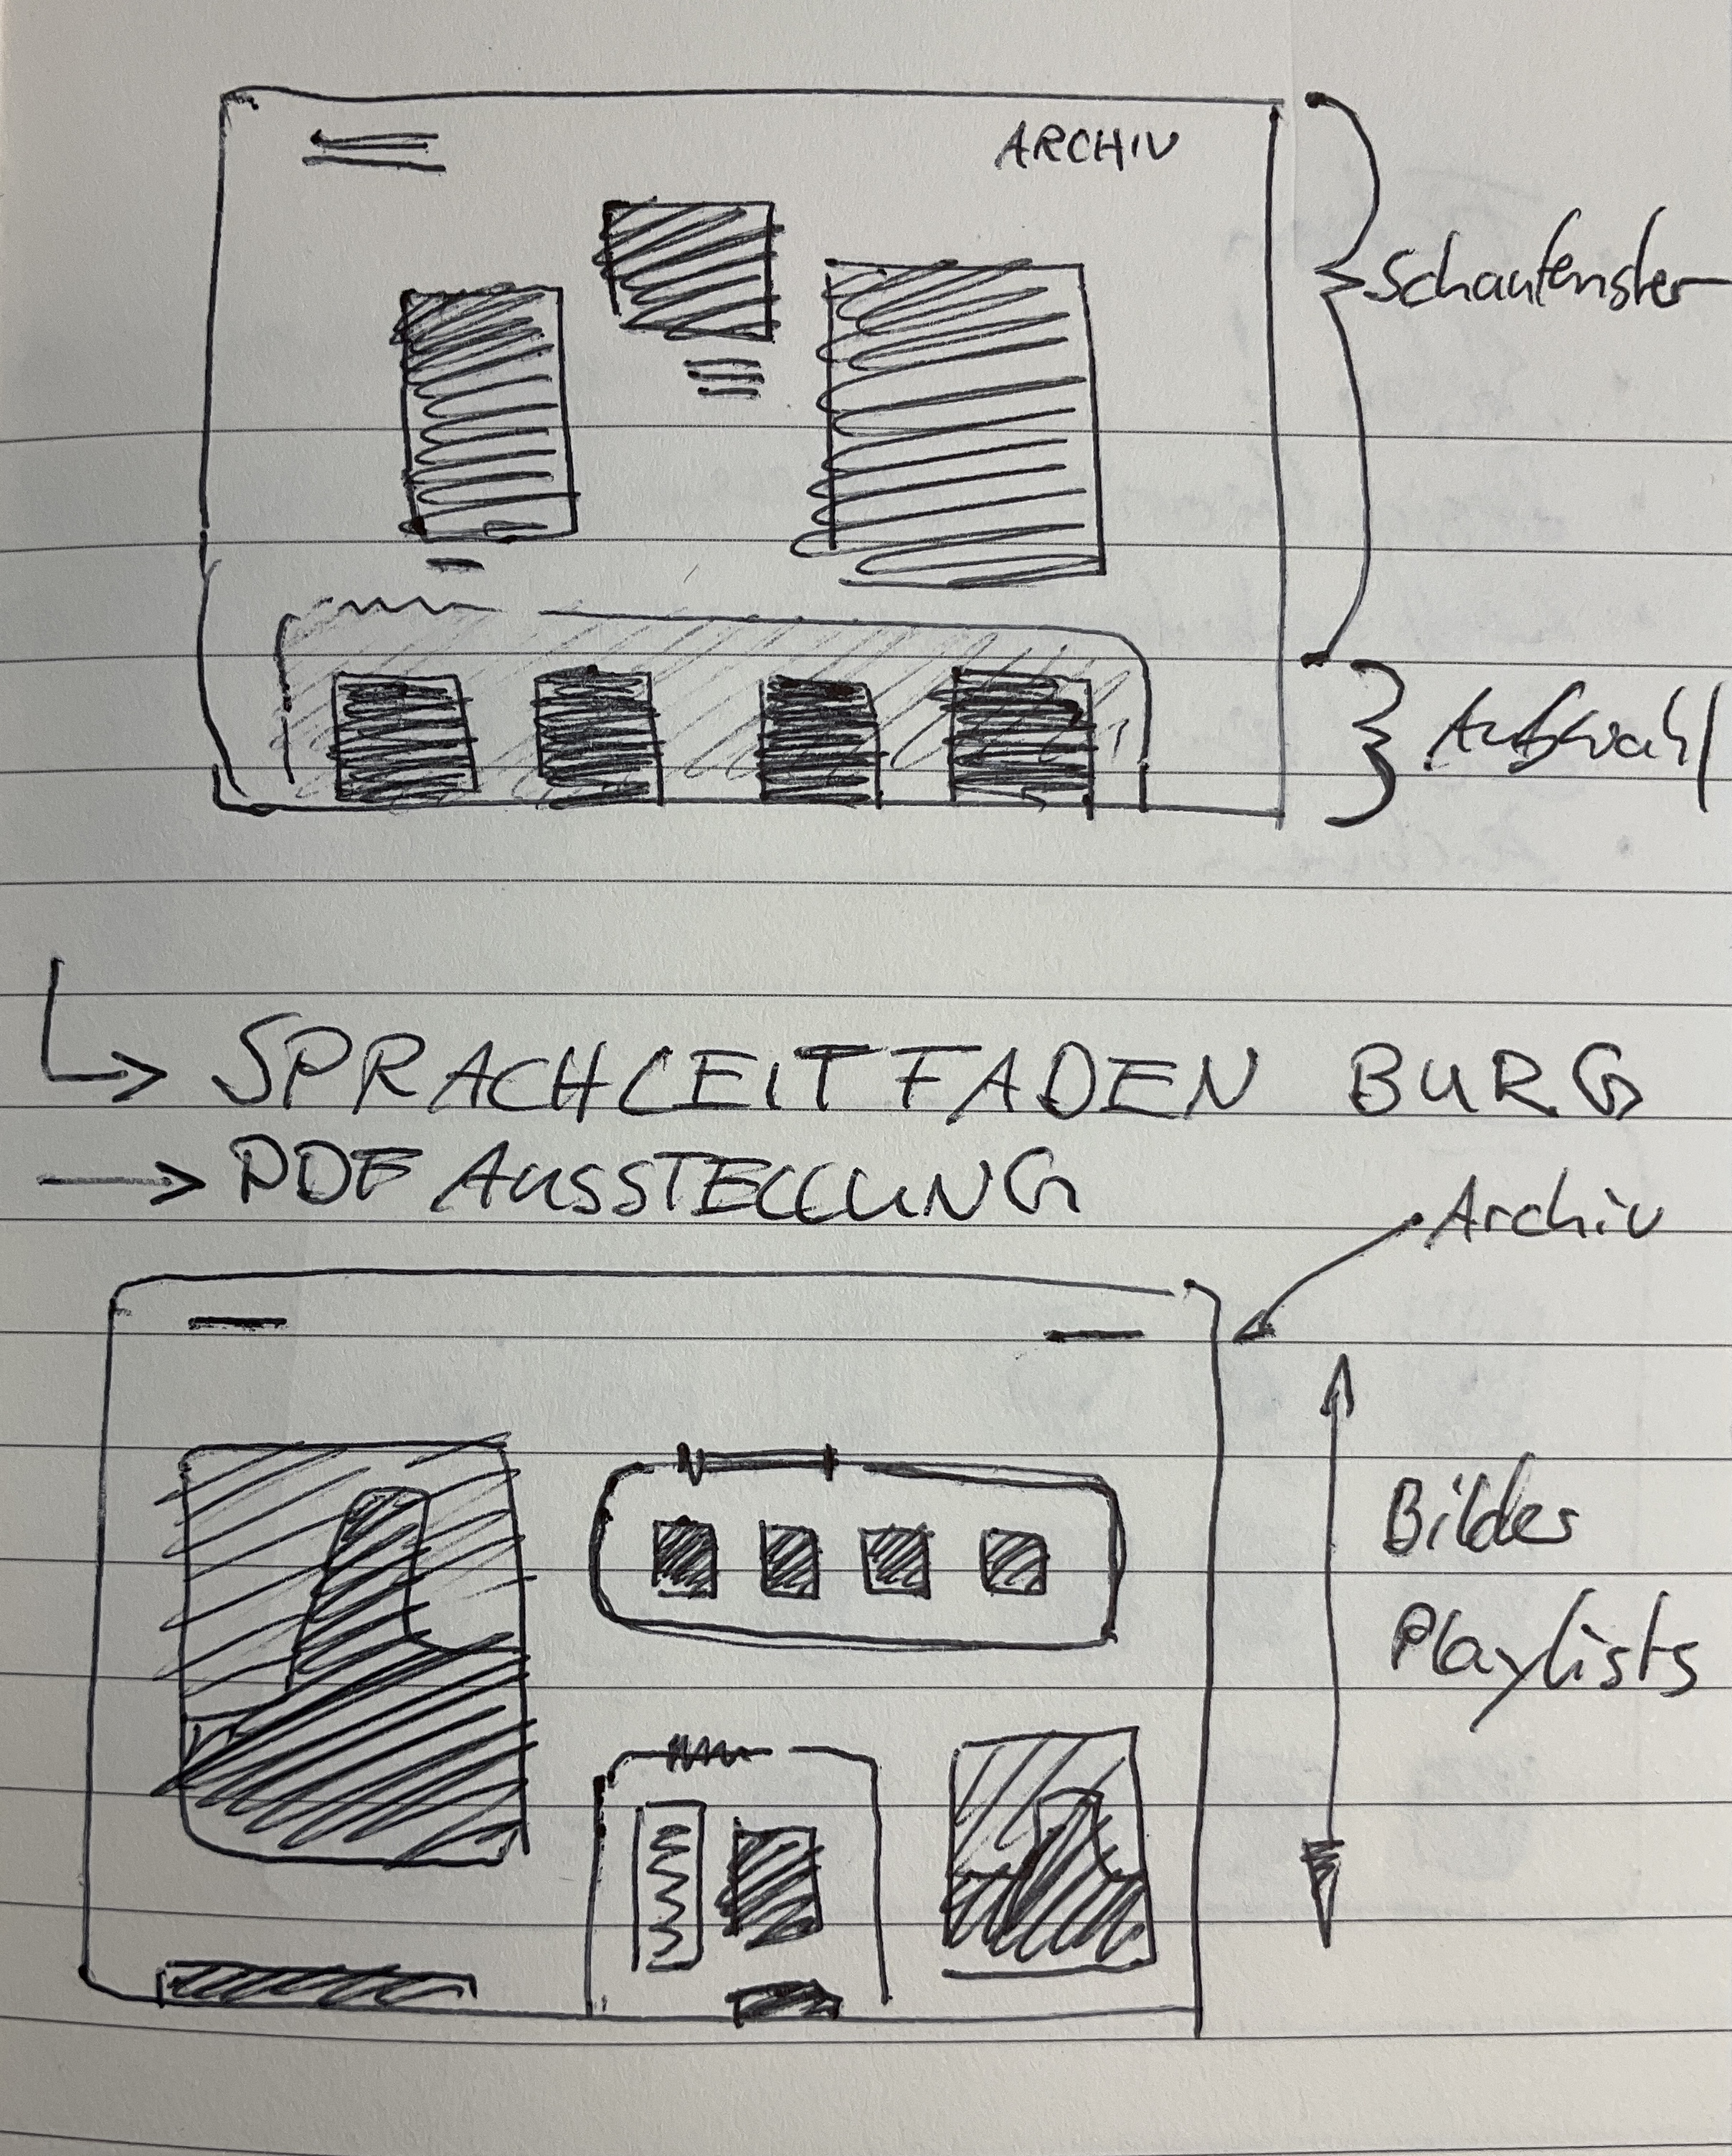 ARCHIV
Schaufenster
Auswahl
SPRACHLEITFADEN BURG
PDF AUSSTELLUNG
Archiv
Bilder
Playlists